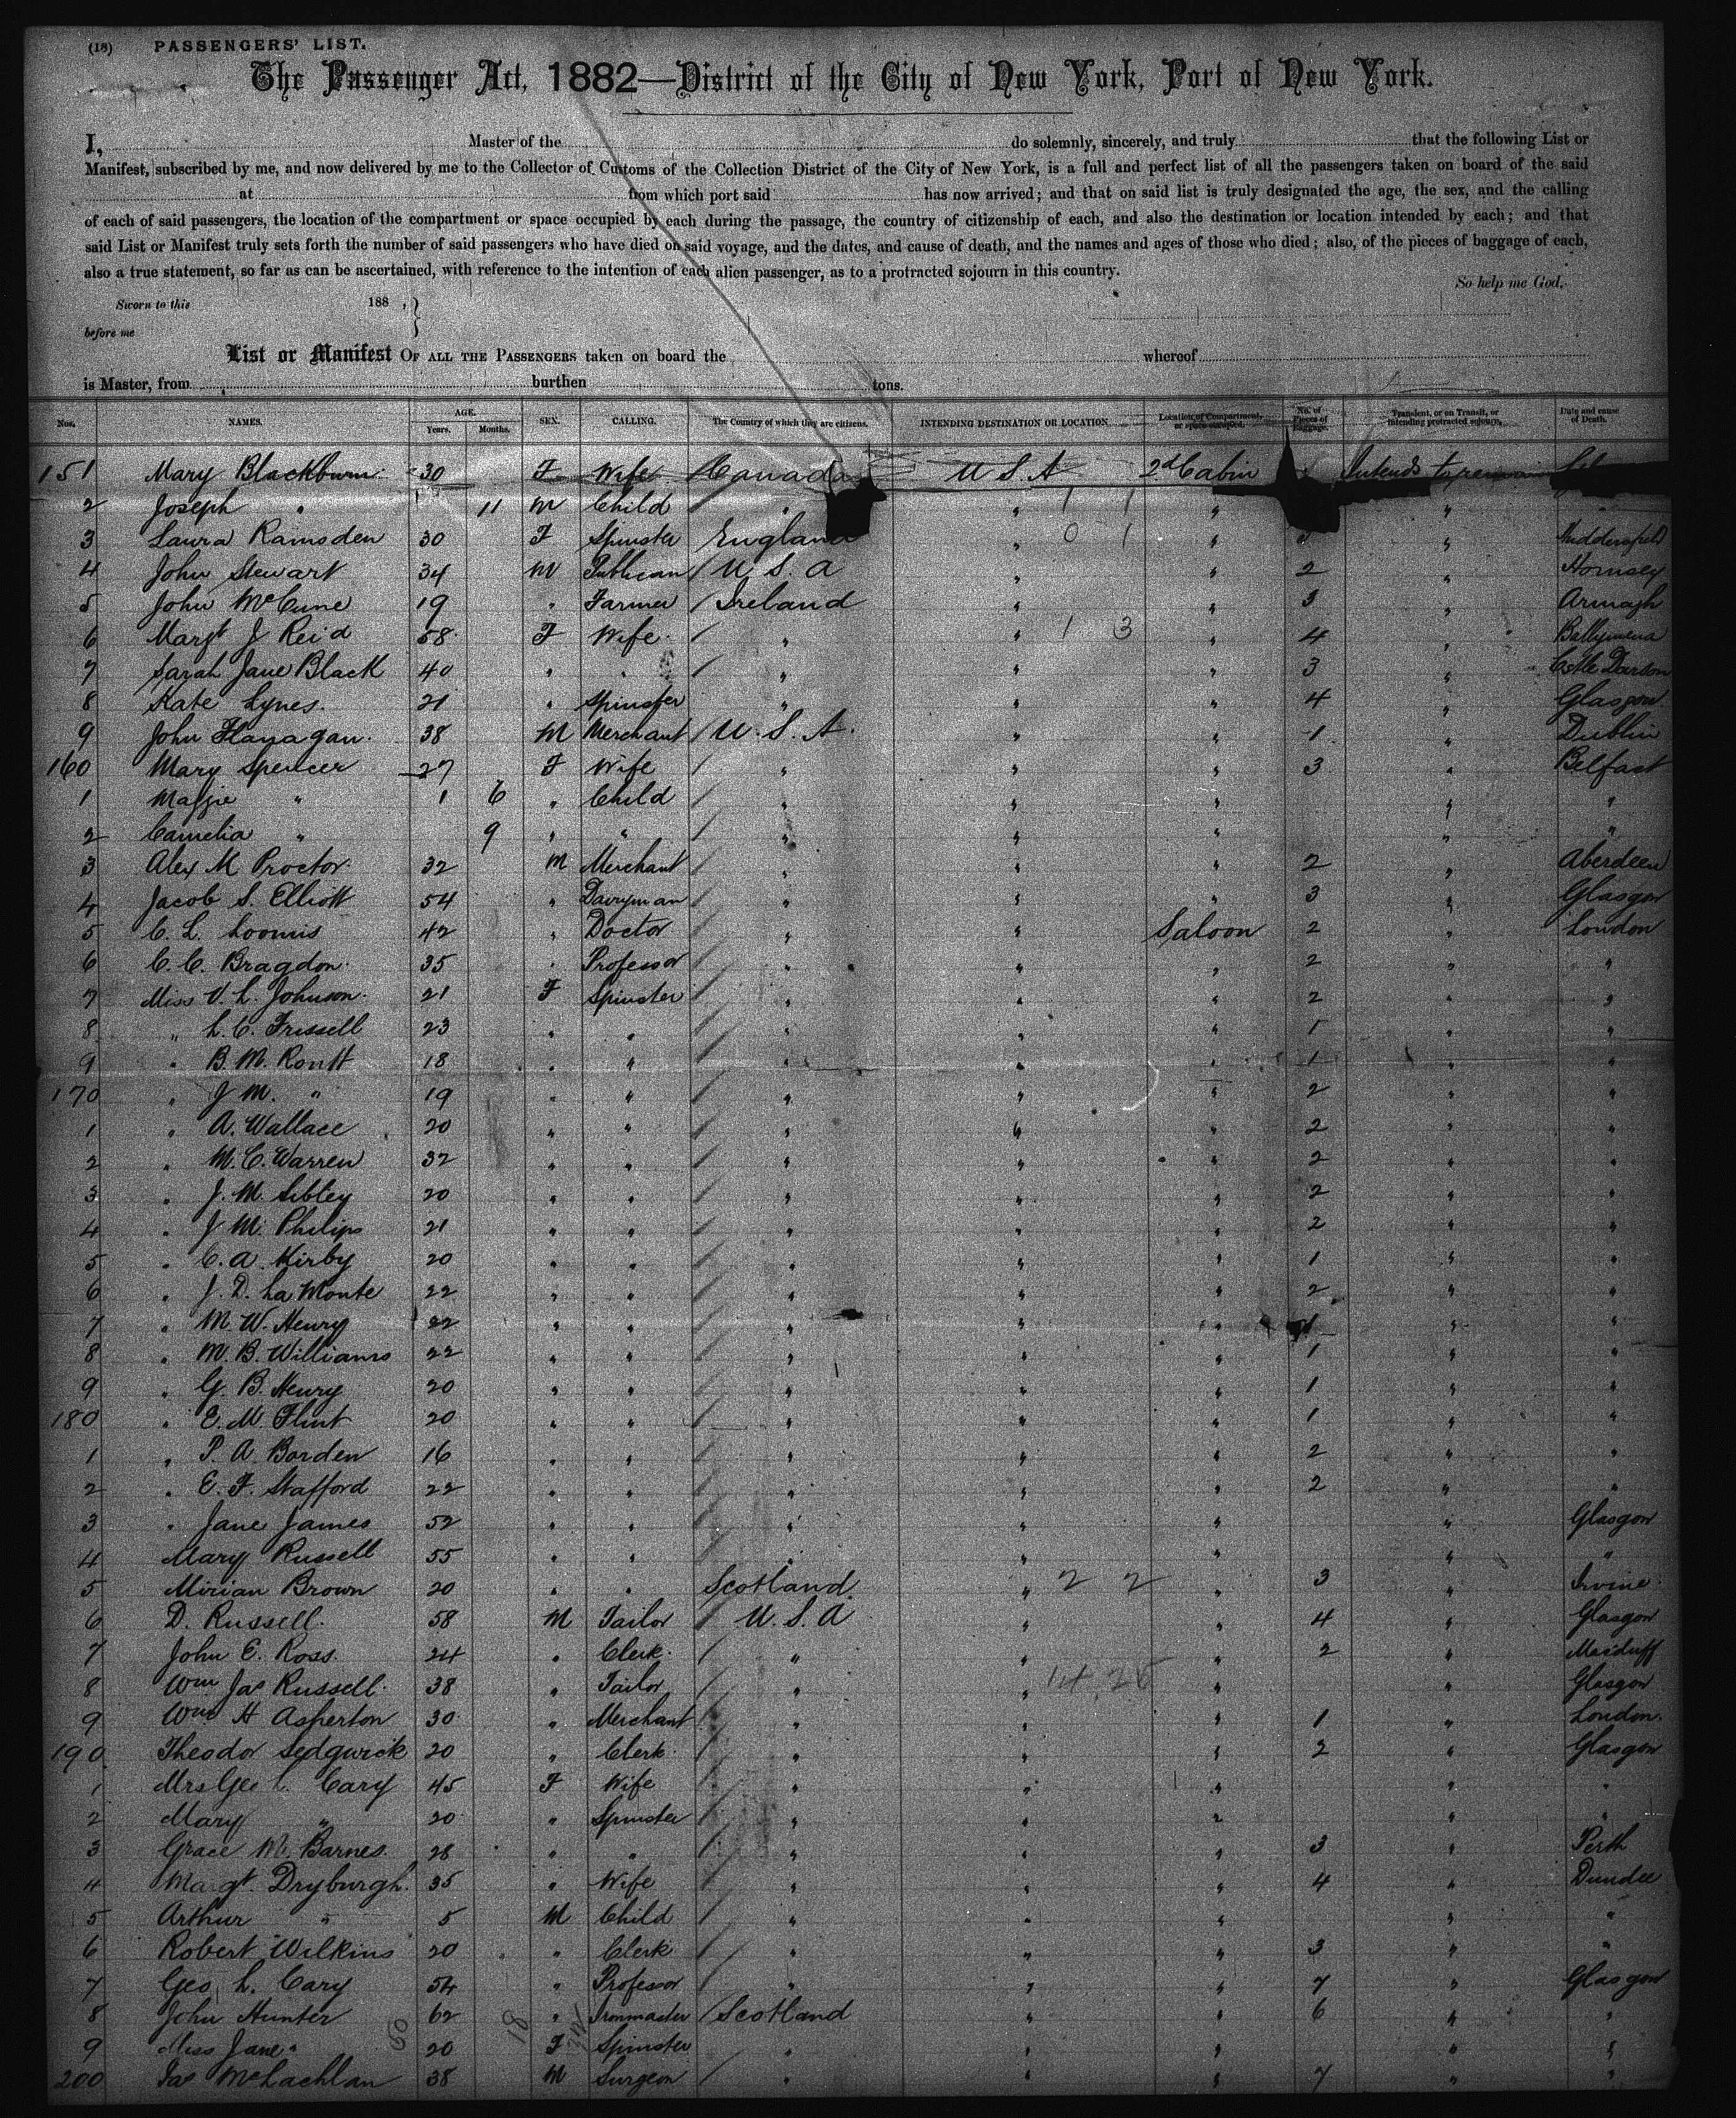 (18) PASSENGERS' LIST.
The Passenger Act, 1882—District of the City of New York, Port of New York.
I, Master of the do solemnly, sincerely, and truly that the following List or
Manifest, subscribed by me, and now delivered by me to the Collector of Customs of the Collection District of the City of New York, is a full and perfect list of all the passengers taken on board of the said
at from which port said has now arrived; and that on said list is truly designated the age, the sex, and the calling
of each of said passengers, the location of the compartment or space occupied by each during the passage, the country of citizenship of each, and also the destination or location intended by each; and that
said List or Manifest truly sets forth the number of said passengers who have died on said voyage, and the dates, and cause of death, and the names and ages of those who died; also, of the pieces of baggage of each,
also a true statement, so far as can be ascertained, with reference to the intention of each alien passenger, as to a protracted sojourn in this country.
So help me God.
Sworn to this 188 ,
before me
List or Manifest OF ALL THE PASSENGERS taken on board the whereof
is Master, from burthen tons.
Nos. NAMES. AGE. Years. Months. SEX. CALLING. The Country of which they are citizens. INTENDING DESTINATION OR LOCATION Location of Compartment, or space occupied. No. of Pieces of Baggage. Transient, or on Transit, or intending protracted sojourn. Date and cause of Death.
151 Mary Blackburn 30 F Wife Canada U S A 2d Cabin Intends to remain
2 Joseph " 11 M Child " " 1 1 " " "
3 Laura Ramsden 30 F Spinster England " 0 1 " " Huddersfield
4 John Stewart 34 M Publican U S. A " " 2 " Hornsey
5 John McCune 19 " Farmer Ireland " " 3 " Armagh
6 Margt J Reid 58 F Wife " " 1 3 " 4 " Ballymena
7 Sarah Jane Black 40 " " " " " 3 " Cstle Dawson
8 Kate Lynes 21 " Spinster " " " 4 " Glasgow
9 John Flanagan 38 M Merchant U. S. A. " " 1 " Dublin
160 Mary Spencer 27 F Wife " " " 3 " Belfast
1 Maggie " 1 6 " Child " " " " "
2 Camelia " 9 " " " " " " "
3 Alex M Proctor 32 M Merchant " " " 2 " Aberdeen
4 Jacob S. Elliott 54 " Dairyman " " " 3 " Glasgow
5 C. L. Loomis 42 " Doctor " " Saloon 2 " London
6 C. C. Bragdon 35 " Professor " " " 2 " "
7 Miss V. L. Johnson 21 F Spinster " " " 2 " "
8 " L. C. Frissell 23 " " " " " 1 " "
9 " B. M. Rontt 18 " " " " " 1 " "
170 " J M. " 19 " " " " " 2 " "
1 " A. Wallace 20 " " " " " 2 " "
2 " M. C. Warren 32 " " " " " 2 " "
3 " J. M. Sibley 20 " " " " " 2 " "
4 " J M. Philips 21 " " " " " 2 " "
5 " C. A. Kirby 20 " " " " " 1 " "
6 " J. D. La Monte 22 " " " " " 2 " "
7 " M. W. Henry 22 " " " " " 1 " "
8 " M. B. Williams 22 " " " " " 1 " "
9 " G. B. Henry 20 " " " " " 1 " "
180 " E. M. Flint 20 " " " " " 1 " "
1 " P. A. Borden 16 " " " " " 2 " "
2 " E. F. Stafford 22 " " " " " 2 " "
3 " Jane James 52 " " " " " " Glasgow
4 Mary Russell 55 " " " " " " "
5 Mirian Brown 20 " " Scotland " 2 2 " 3 " Irvine
6 D. Russell 58 M Tailor U. S. A " " 4 " Glasgow
7 John E. Ross 24 " Clerk " " " 2 " Macduff
8 Wm Jas Russell 38 " Tailor " " " " Glasgow
9 Wm H Asperton 30 " Merchant " " " 1 " London
190 Theodor Sedgwick 20 " Clerk " " " 2 " Glasgow
1 Mrs Geo L. Cary 45 F Wife " " " " "
2 Mary " 20 " Spinster " " " " "
3 Grace M. Barnes 28 " " " " " 3 " Perth
4 Margt. Dryburgh 35 " Wife " " " 4 " Dundee
5 Arthur " 5 M Child " " " " "
6 Robert Wilkins 20 " Clerk " " " 3 " "
7 Geo L. Cary 54 " Professor " " " 7 " Glasgow
8 John Hunter 62 " Ironmaster Scotland " " 6 " "
9 Miss Jane " 20 F Spinster " " " " "
200 Jas McLachlan 38 M Surgeon " " " 7 " "